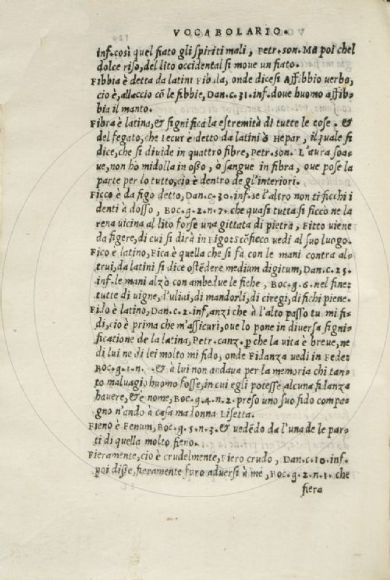 VOCABOLARIO.
inf. così quel fiato gli spiriti mali, Petr. son. Ma poi chel
dolce riso, del lito occidental si move un fiato.
Fibbia è detta da latini Fibula, onde dicesi Affibbio verbo,
cio è, allaccio cõ le fibbie, Dan. c. 31. inf. dove huomo affib=
bia il manto.
Fibra è latina, & significa la estremità di tutte le cose. &
del fegato, che Iecur è detto da latini ò Hepar, il quale si
dice, che si divide in quattro fibre, Petr. son. L'aura soa=
ve, non hò midolla in osso, ò sangue in fibra, ove pose la
parte per lo tutto, cio è dentro de gl'interiori.
Ficco è da figo detto, Dan. c. 30. inf. se l'altro non ti ficchi i
denti à dosso, Boc. g. 2. n. 7. che quasi tutta si ficcò ne la
rena vicina al lito forse una gittata di pietra, Fitto viene
da figere, di cui si dirà in Figo: Scõficco vedi al suo luogo.
Fico è latino, Fica è quella che si fa con le mani contra al=
trui, da latini si dice ostẽdere medium digitum, Dan. c. 25.
inf. le mani alzò con ambelue le fiche, Boc. g. 6. nel fine:
tutte di vigne, d'ulivi, di mandorli, di ciregi, di fichi piene.
Fido è latino, Dan. c. 2. inf, anzi che à l'alto passo tu mi fi=
di, cio è prima che m'assicuri, ove lo pone in diversa signi=
ficatione de la latina, Petr. canz. p che la vita è breve, ne
di lui ne di lei molto mi fido, onde Fidanza vedi in Fede:
Boc. g. 1. n. . & à lui non andava per la memoria chi tan=
to malvagio huomo fosse, in cui egli potesse alcuna fidanza
havere, & è nome, Boc. g. 4. n. 2. preso uno suo fido compe=
gno n'andò à casa madonna Lisetta.
Fieno è Fenum, Boc. g. 5. n. 3. & vedẽdo da l'una de le par=
ti di quella molto fieno.
Fieramente, cio è crudelmente, Fiero crudo, Dan. c. 10. inf.
poi disse, fieramente furo adversi à me, Boc. g. 2. n. 1. che
fiera